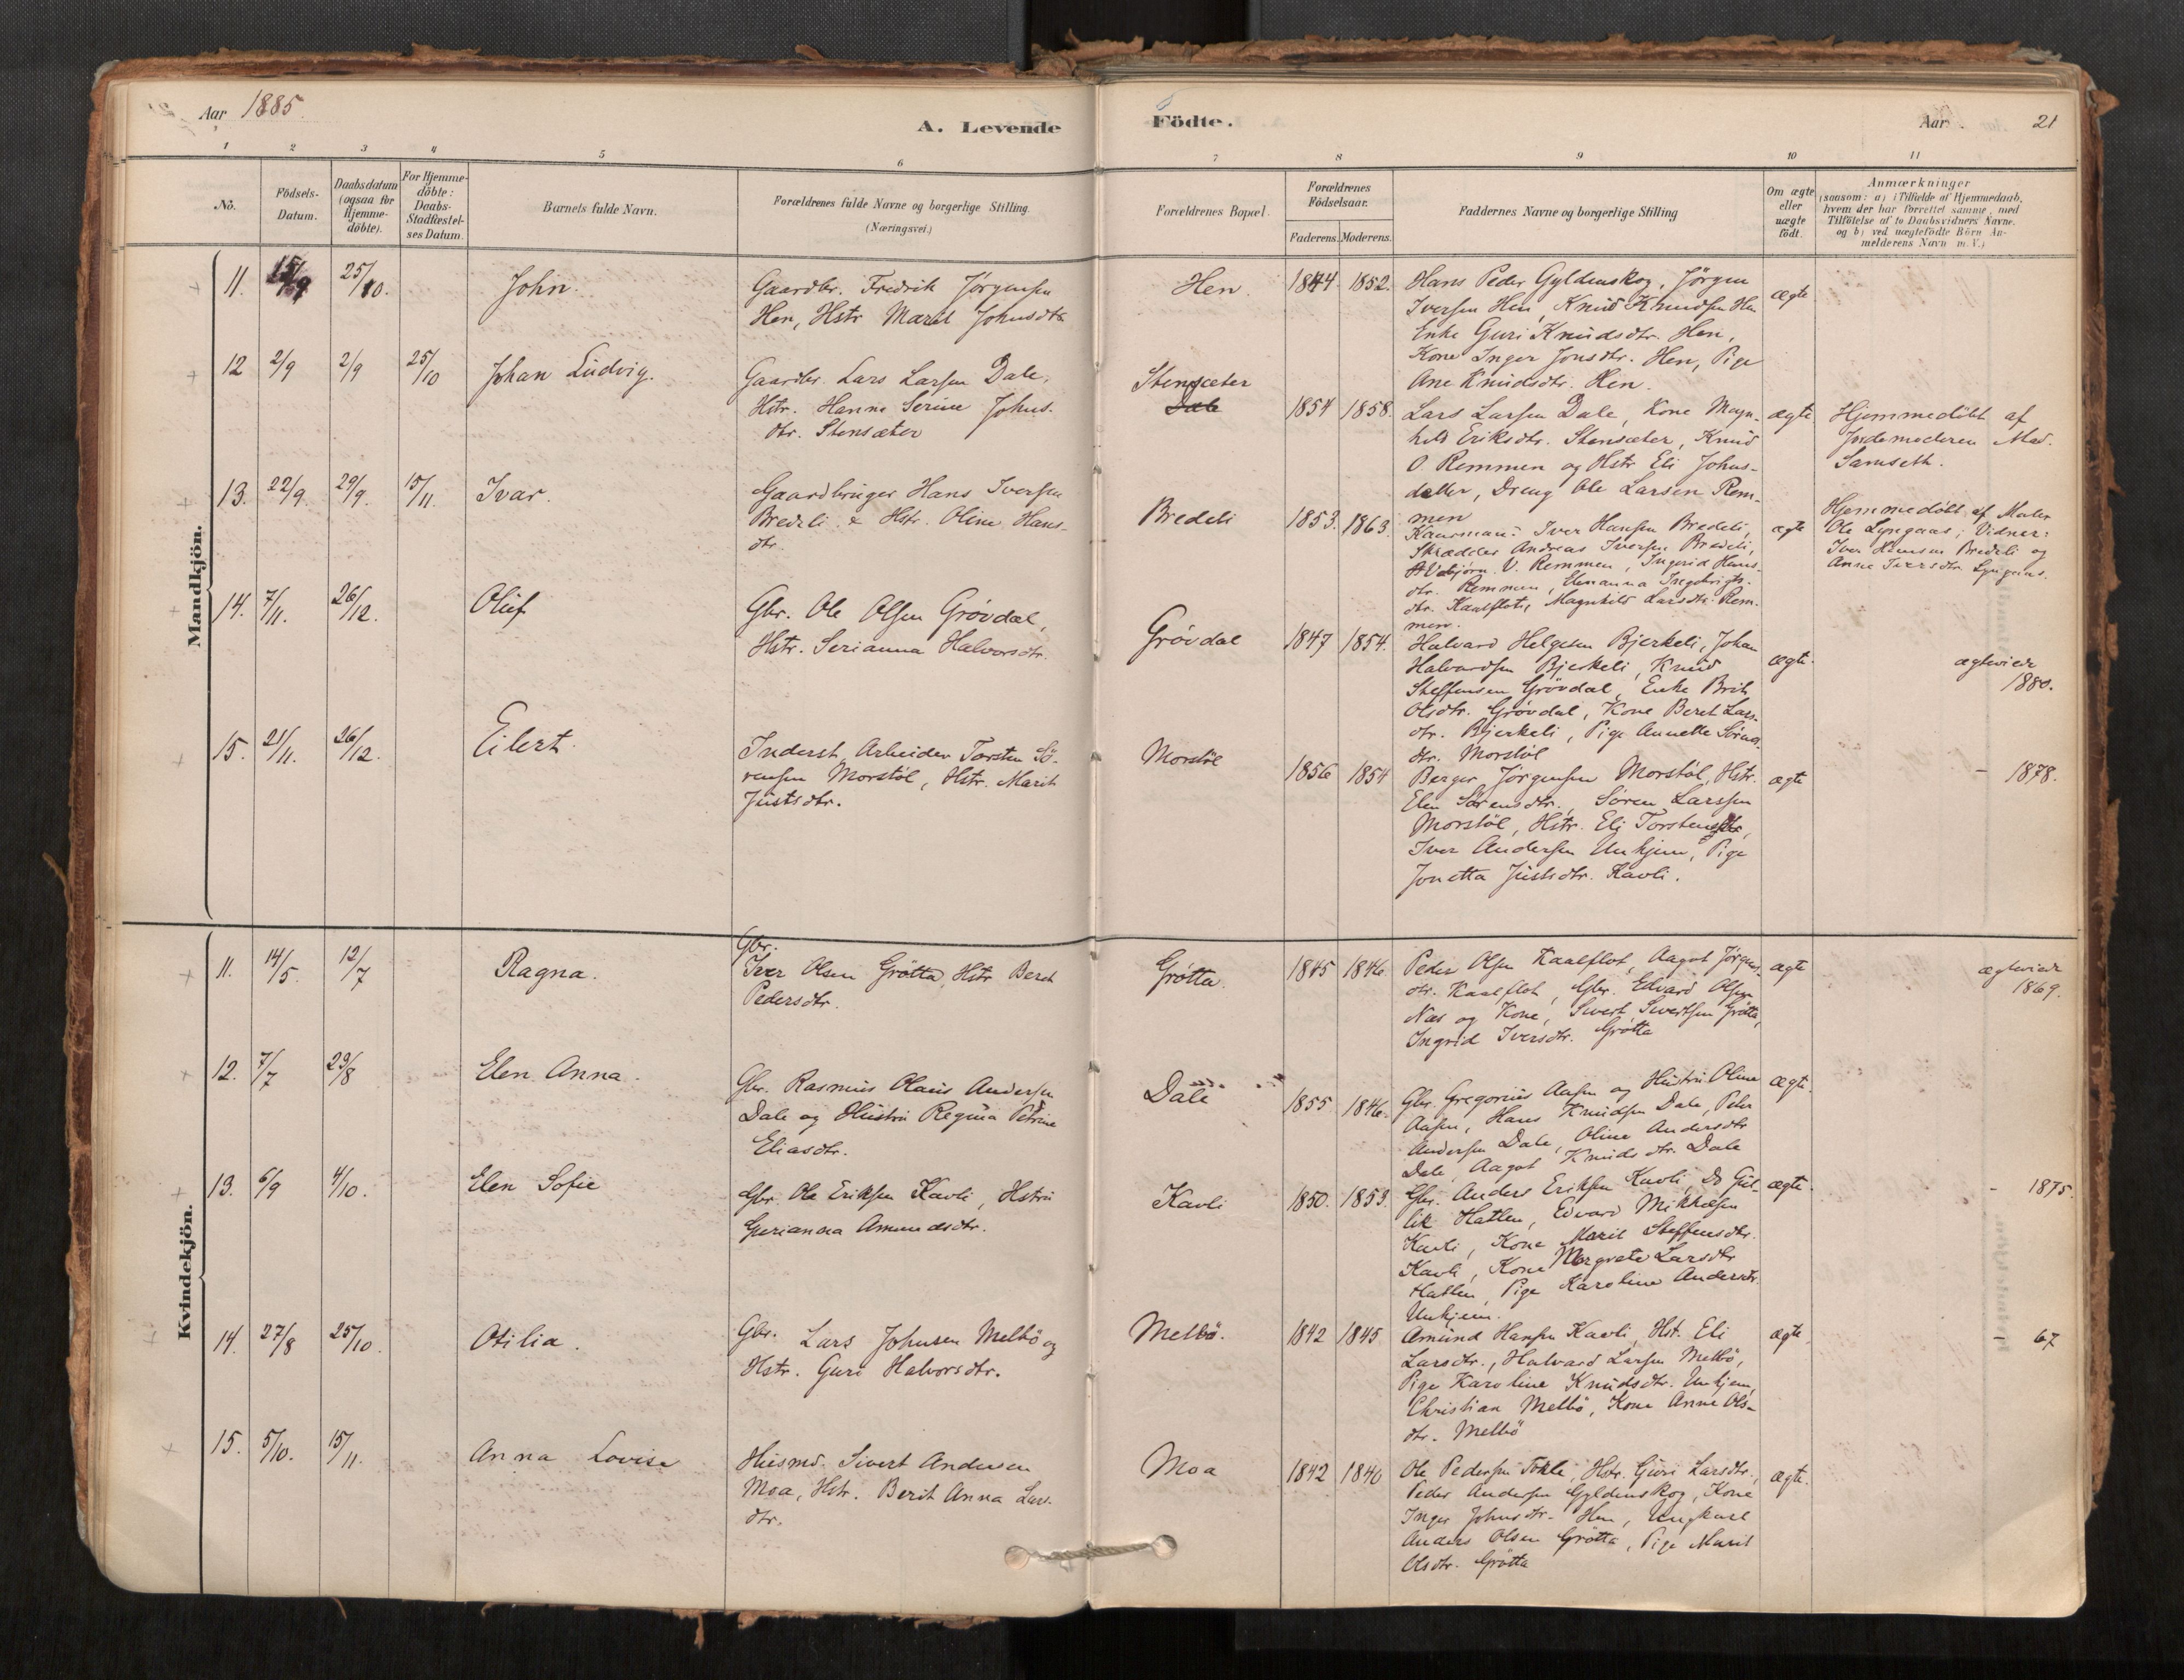 Aar 1885.
A. Levende
Födte.
Aar
21
1 2 3 4 5 6 7 8 9 10 11
No.
Födsels-
Datum.
Daabsdatum
(ogsaa for
Hjemme-
döbte).
For Hjemme-
döbte:
Daabs-
Stadfæstel-
ses Datum.
Barnets fulde Navn.
Forældrenes fulde Navne og borgerlige Stilling.
(Næringsvei.)
Forældrenes Bopæl.
Forældrenes
Födselsaar.
Faderens. Moderens.
Faddernes Navne og borgerlige Stilling
Om ægte
eller
uægte
födt.
Anmærkninger
(saasom: a) i Tilfælde af Hjemmedaab,
hvem der har forrettet samme, med
Tilföielse af to Daabsvidners Navne,
og b) ved uægtefödte Börn An-
melderens Navn m. V.)
Mandkjön.
11. 15/9 25/10.
John.
Gaardbr. Fredrik Jörgensen
Hen, Hstr Marit Johnsdtr
Hen
1844. 1852.
Hans Peder Gyldenskog, Jörgen
Iversen Hen, Knud Knudsen Hen
Enke Guri Knudsdtr. Hen,
Kone Inger Jonsdtr. Hen, Pige
Ane Knudsdtr. Hen.
ægte
12 2/9 2/9 25/10
Johan Ludvig.
Gaardbr. Lars Larsen Dale,
Hstr. Hanne Serine Johns-
dtr. Stensæter
Stensæter
Dale
1854 1858.
Lars Larsen Dale, Kone Magn-
hild Eriksdtr. Stensæter, Knud
O. Remmen og Hstr Eli Johns-
datter, Dreng Ole Larsen Rem-
men
ægte
Hjemmedöbt af
Jordemoderen Mad.
Samseth.
13. 22/9 29/9. 15/11.
Ivar.
Gaardbruger Hans Iversen
Bredeli & Hstr. Oline Hans-
dtr.
Bredeli
1853. 1863.
Iver Hansen Bredeli,
Skrædder Andreas Iversen Bredeli,
V. Remmen, Ingerid Hans-
dtr. Remmen, Elenanna Ingebrigts-
dtr. Kaalflot, Magnhild Larsdtr. Rem-
men.
ægte
Hjemmedöbt af Maler
Ole Lyngaas; Vidner:
Iver Hansen Bredeli og
Anne Iversdtr Lyngaas.
14. 7/11. 26/12.
Oluf
Gbr. Ole Olsen Grövdal,
Hstr. Serianna Halvorsdtr.
Grövdal
1847 1854.
Halvard Helgesen Bjerkeli, Johan
Halvardsen Bjerkeli, Knud
Steffensen Grövdal, Enke Brit
Olsdtr. Grövdal, Kone Beret Lars-
dtr. Bjerkeli, Pige Annette Sörens-
dtr. Morstöl
ægte.
ægteviede
1880.
15. 21/11. 26/12.
Eilert.
Inderst, Arbeider Torsten Sö-
rensen Morstöl, Hstr. Marit
Justsdtr.
Morstöl
1856 1854
Berger Jörgensen Morstöl, Hstr.
Elen Sörensdtr., Sören Larssen
Morstöl, Hstr. Eli Torstensdtr,
Iver Andersen Unhjem, Pige
Jonetta Justsdtr. Kavli.
ægte
- 1878.
Kvindekjön.
11. 14/5. 12/7
Ragna.
Gbr.
Iver Olsen Grötta, Hstr Beret
Pedersdtr.
Grötta.
1845 1846
Peder Olsen Kaalflot, Aagot Jörgens-
dtr. Kaalflot, Gbr. Edvard Olsen
Næs og Kone, Sivert Sivertsen Grötta,
Ingrid Iversdtr. Grötta
ægte
ægteviede
1869.
12. 7/7 23/8
Elen Anna.
Gbr. Rasmus Olaus Andersen
Dale og Hustru Regina Petrine
Eliasdtr.
Dale
1855. 1846.
Gbr. Gregorius Aasen og Hustru Oline
Aasen, Hans Knudsen Dale, Peter
Andersen Dale, Oline Andersdtr
Dale, Aagot Knudsdtr. Dale
ægte.
13. 6/9 4/10.
Elen Sofie
Gbr. Ole Eriksen Kavli, Hstru
Gurianna Amundsdtr.
Kavli
1850. 1853.
Gbr. Anders Eriksen Kavli, Do Gul-
lik Hatlen, Edvard Mikkelsen
Kavli, Kone Marit Steffensdtr.
Kavli, Kone Margrete Larsdtr
Hatlen, Pige Karoline Andersdtr.
Unhjem.
ægte.
- 1875.
14. 27/8 25/10.
Otilia.
Gbr. Lars Johnsen Melbö og
Hstr. Guri Halvorsdtr.
Melbö.
1842 1845
Amund Hansen Kavli, Hst. Eli
Larsdtr., Halvard Larsen Melbö,
Pige Karoline Knudsdtr. Unhjem,
Christian Melbö, Kone Anne Ols-
dtr. Melbö
ægte.
- 67
15. 5/10. 15/11.
Anna Lovise
Husmd. Sivert Andersen
Moa, Hstr. Berit Anna Lars-
dtr.
Moa
1842 1840
Ole Pedersen Tokle, Hstr. Guri Larsdtr.,
Peder Andersen Gyldenskog, Kone
Inger Johnsdtr. Hen, Ungkarl
Anders Olsen Grötta, Pige Marit
Olsdtr. Grötta
ægte.